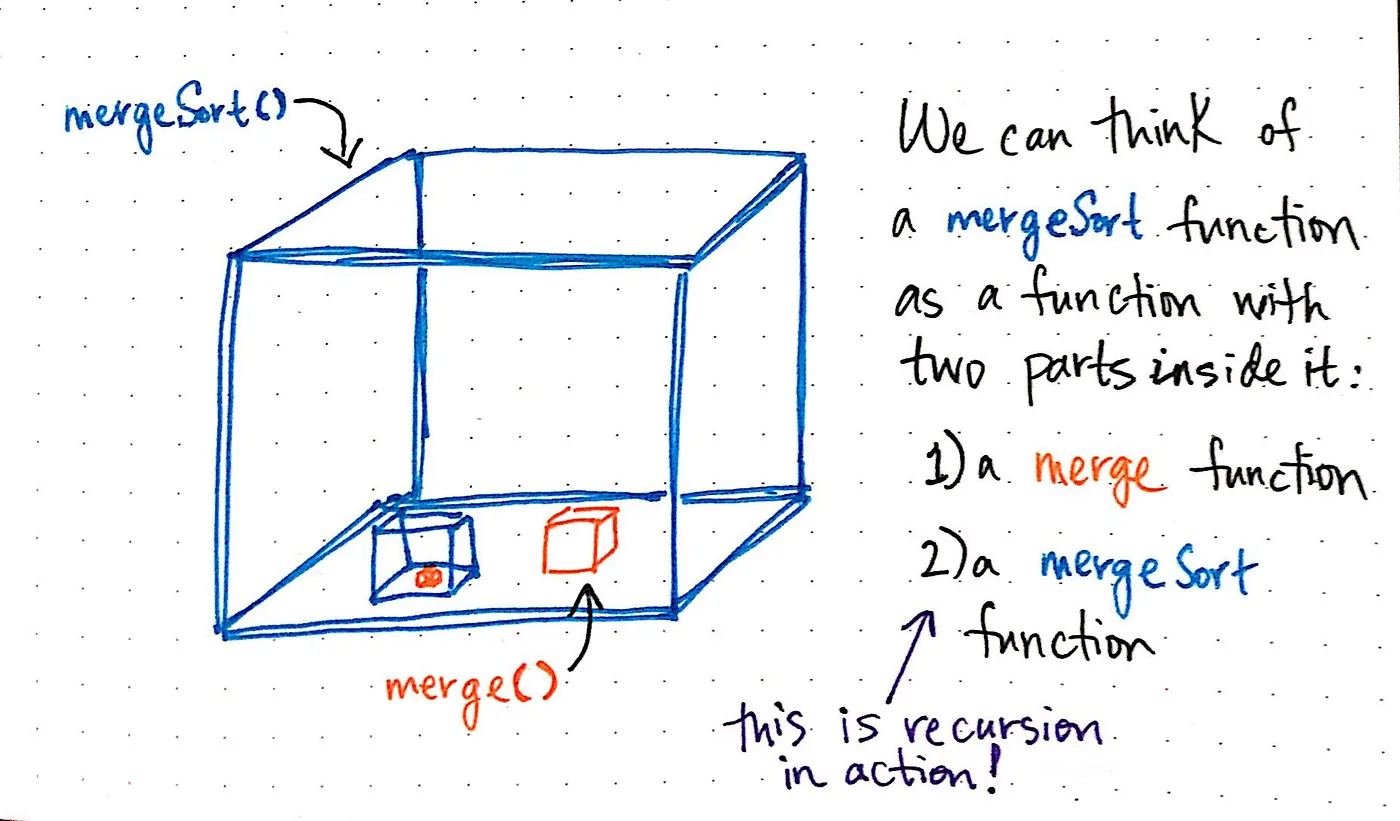 mergeSort()
merge()
We can think of
a mergeSort function
as a function with
two parts inside it:
1) a merge function
2) a mergeSort
function
this is recursion
in action!